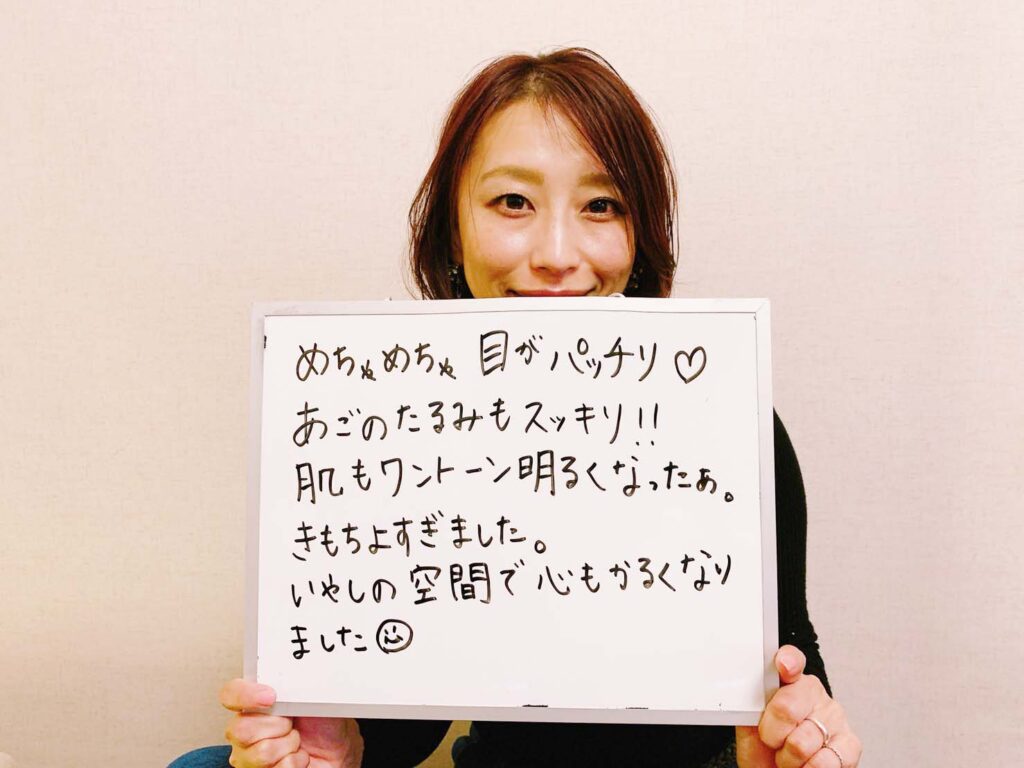 めちゃめちゃ 目がパッチリ♡
あごのたるみもスッキリ!!
肌もワントーン明るくなったぁ。
きもちよすぎました。
いやしの空間で心もかるくなり
ました☺